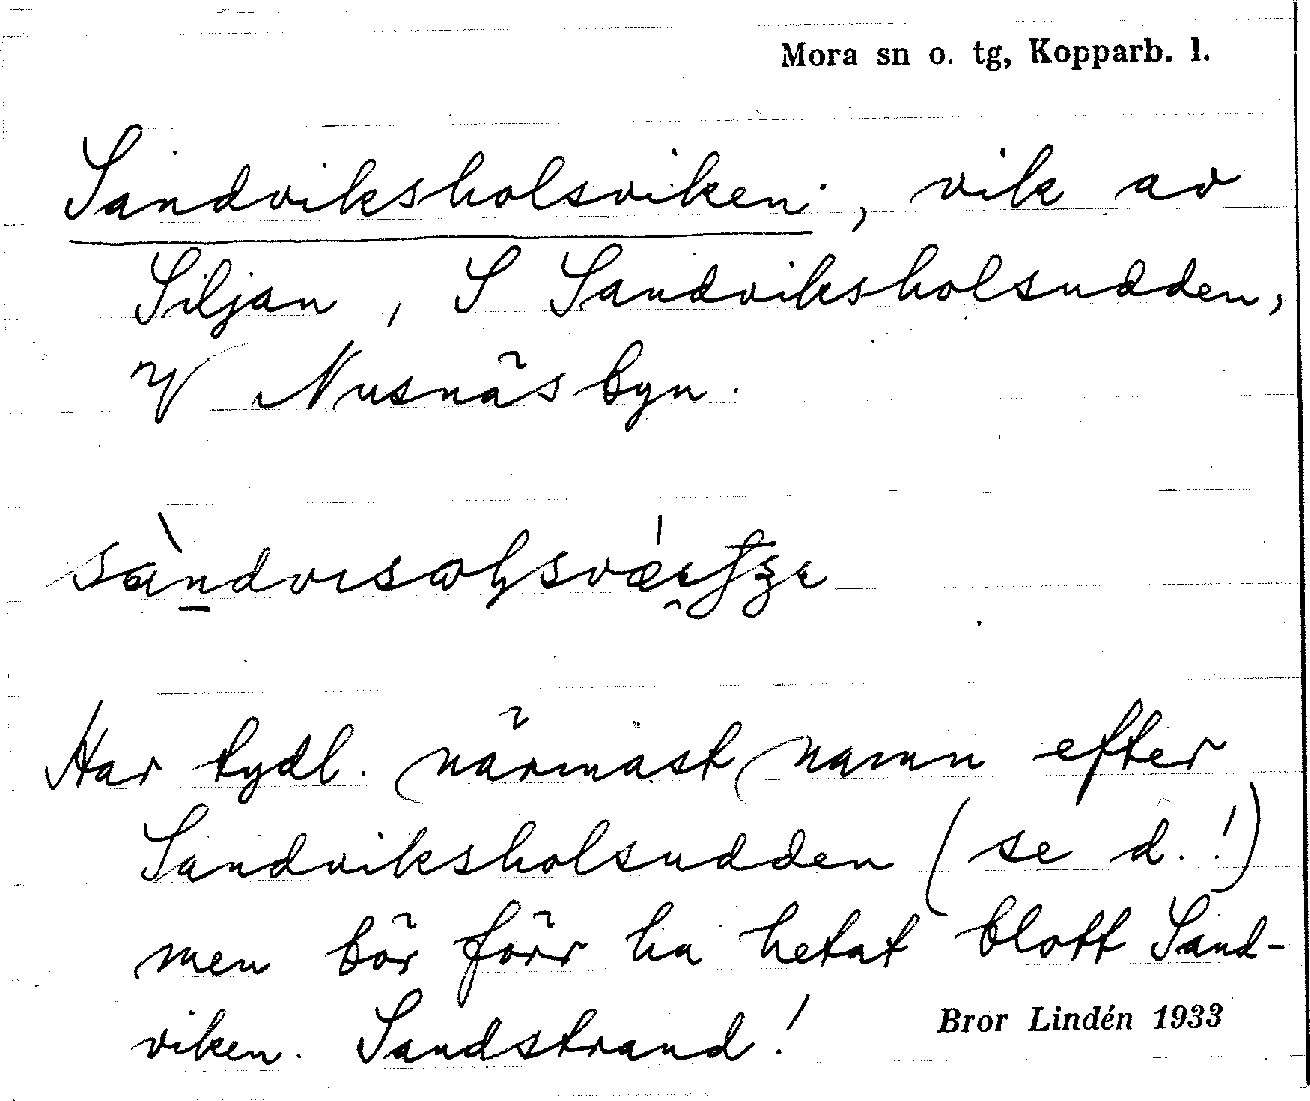 Mora sn o. tg, Kopparb. l.
Sandviksholsviken, vik av
Siljan, S Sandviksholsudden,
V Nusnäsbyn.
Har tydl. (närmast) namn efter
Sandviksholsudden (se d.!)
men bör förr ha hetat blott Sand-
viken. Sandstrand!
Bror Lindén 1933